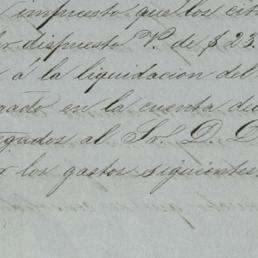 impuesto aquellos cit
dispuesto V. de $23.
á la liquidacion del
gado en la cuenta de
egados al Sr. D. D
los gastos siguientes